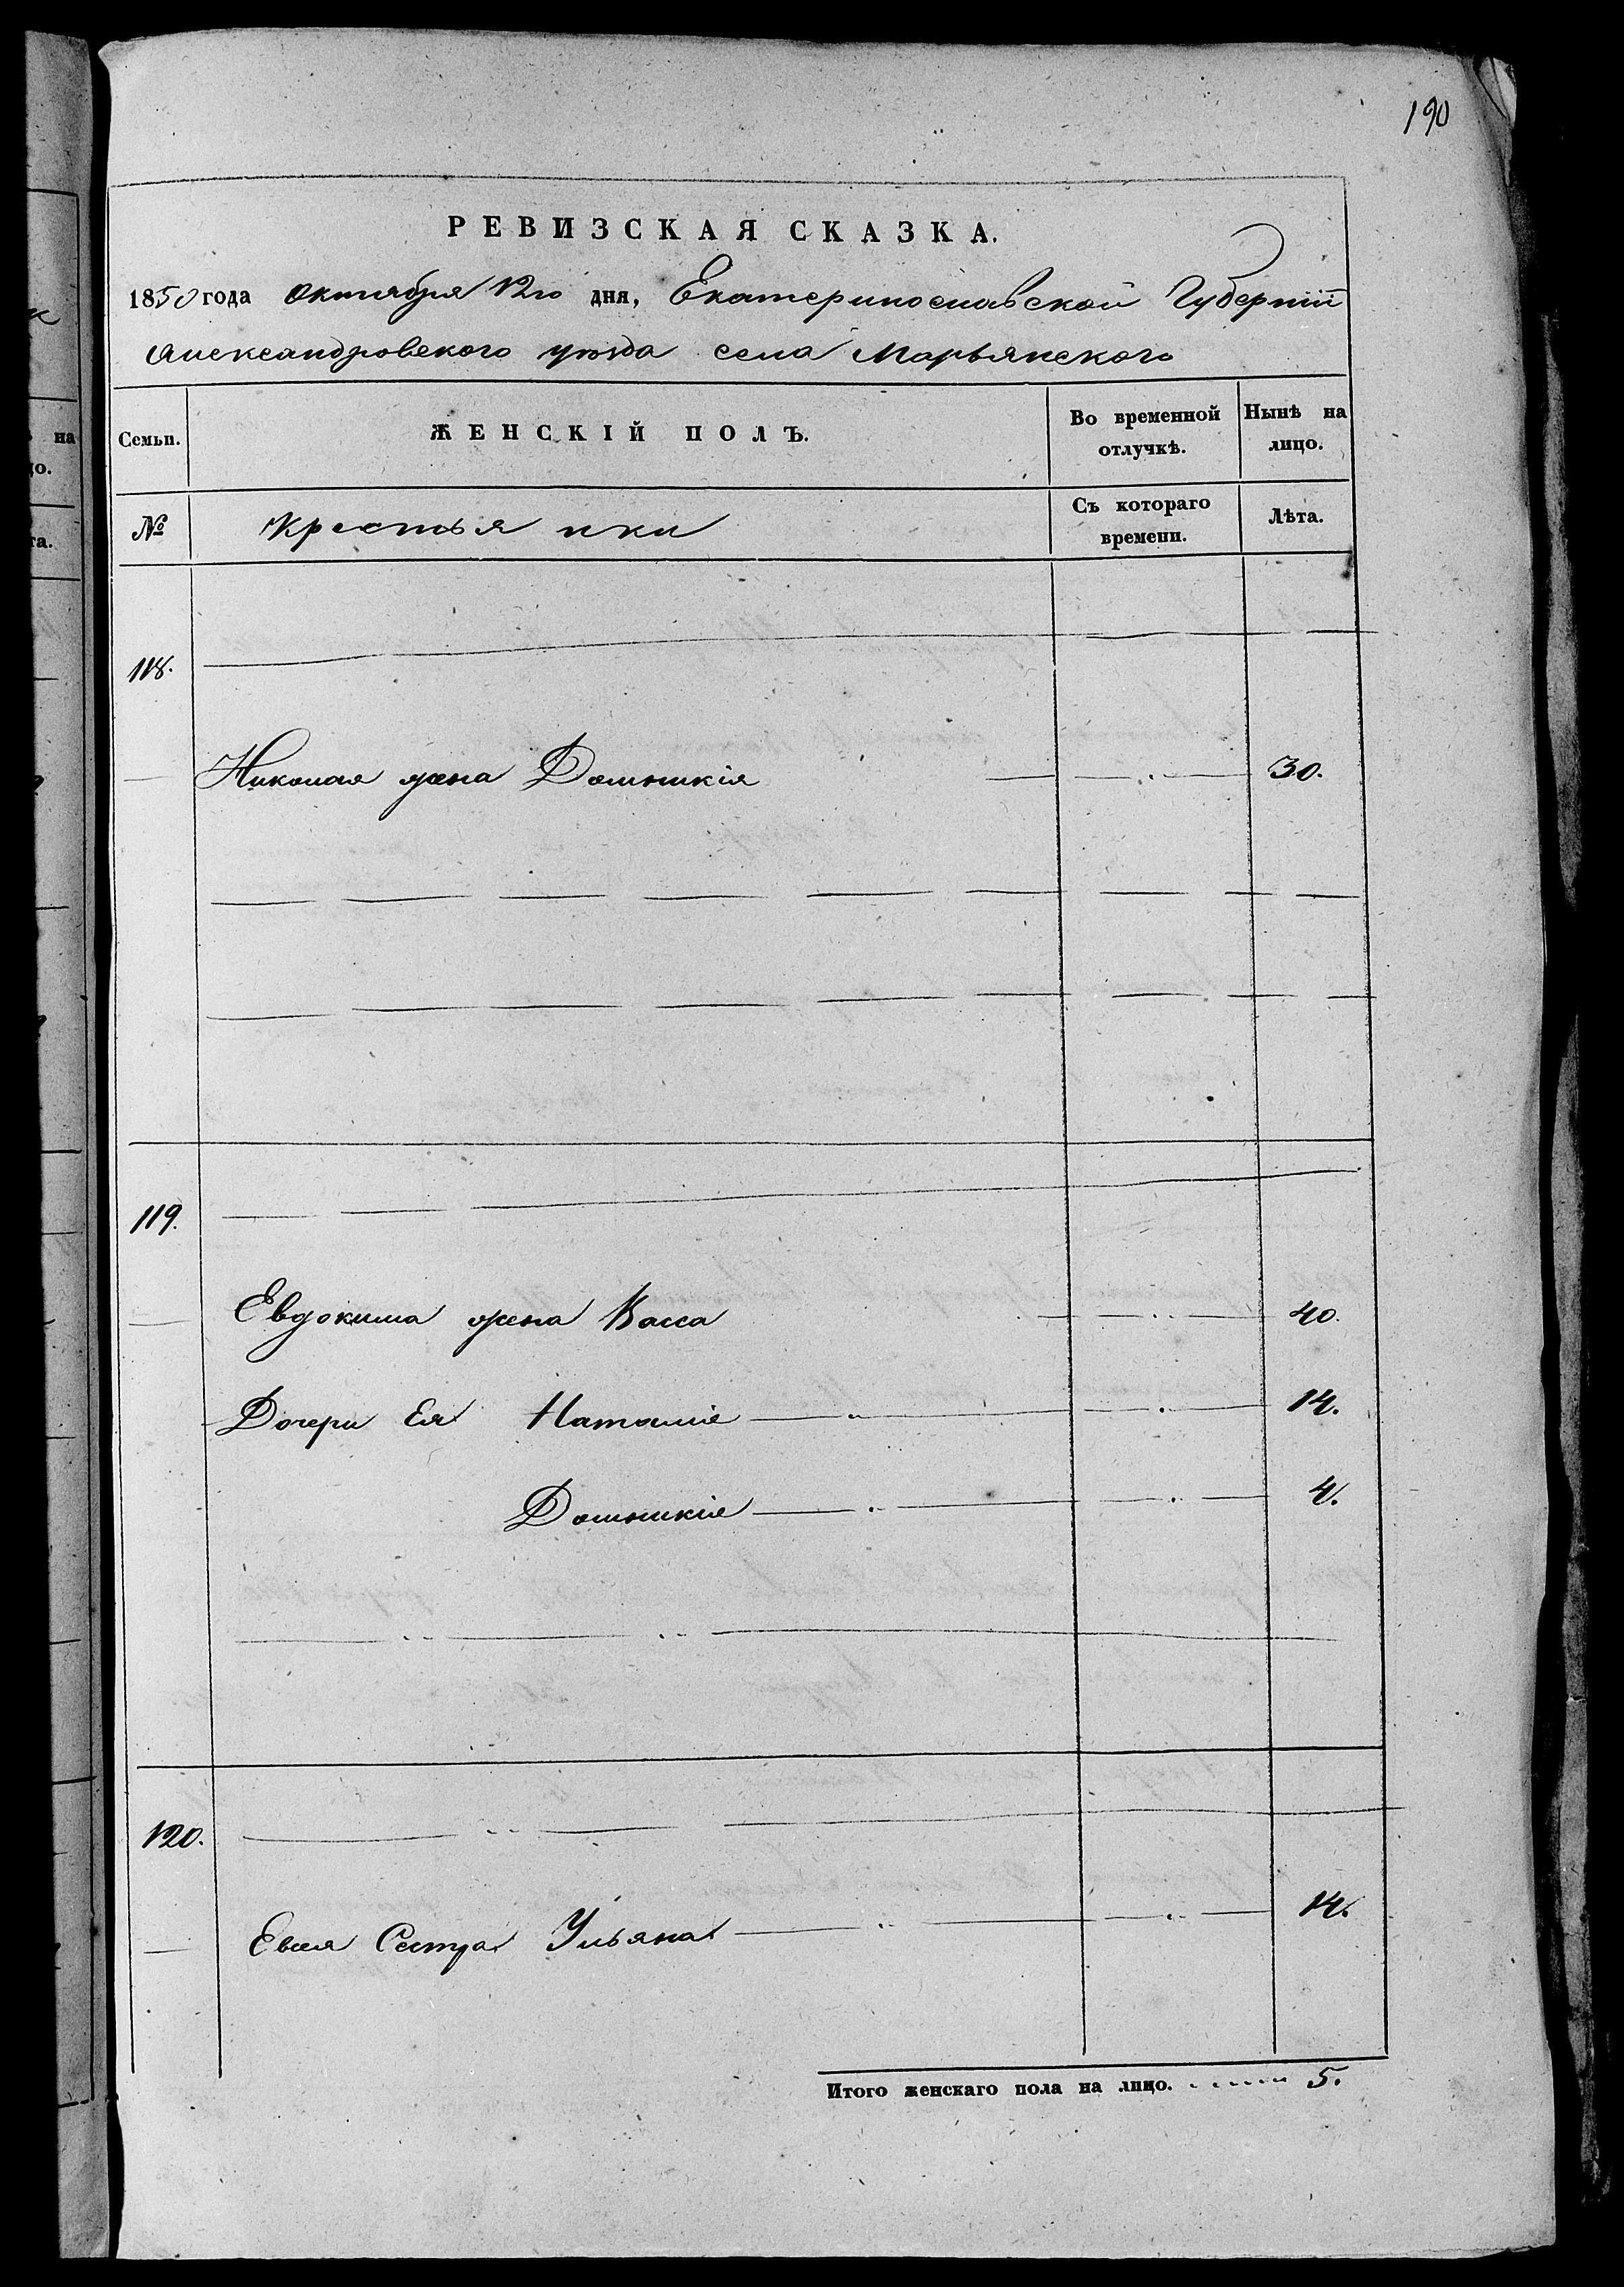 190
РЕВИЗСКАЯ СКАЗКА.
1850 года Октября 12го дня, Екатеринославской Губернїи
Александровского уѣзда села Марьянского
Семьи. ЖЕНСКІЙ ПОЛЪ. Во временной отлучкѣ. Нынѣ на лицо.
№ Крестьянки Съ котораго времени. Лѣта.
118.
Николая жена Домникія 30.
119.
Евдокима жена Васса 40.
Дочери Ея Наталія 14.
Домникія 4.
120.
Евсея Сестра Ульяна 14.
Итого женскаго пола на лицо. 5.